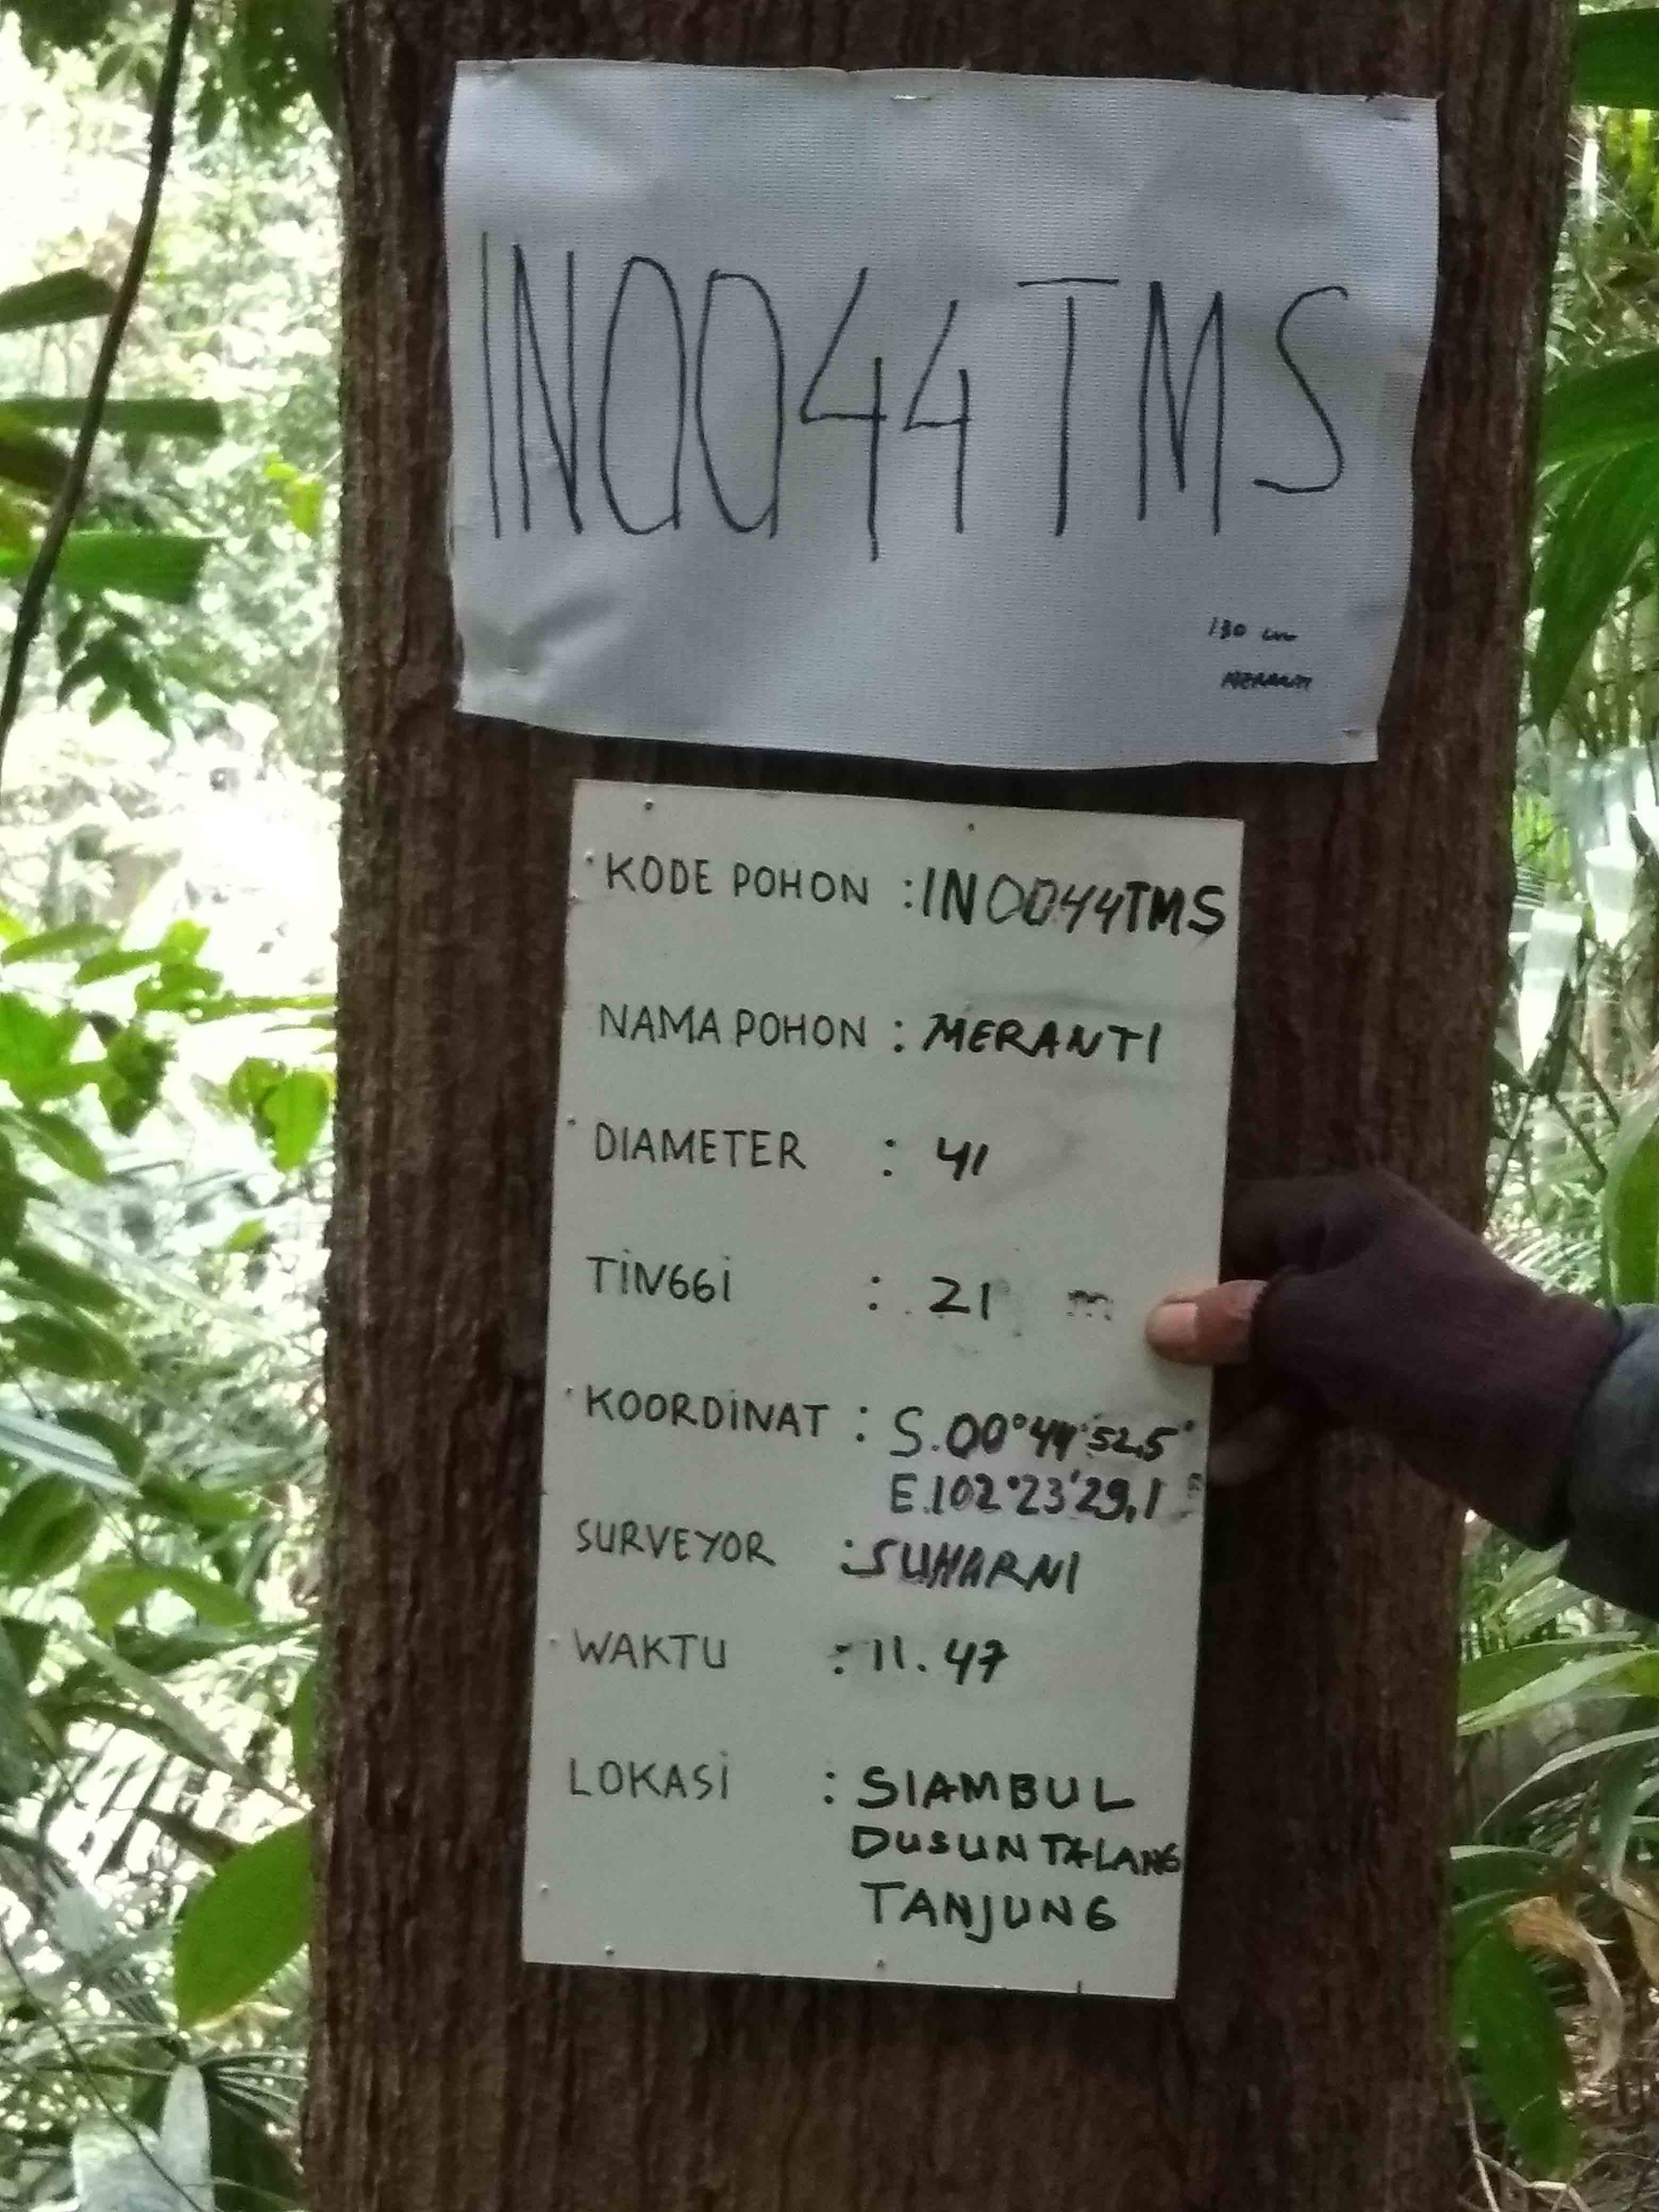 IN0044TMS
130 cm
MERANTI
KODE POHON : IN0044TMS
NAMA POHON : MERANTI
DIAMETER : 41
TINGGI : 21 m
KOORDINAT : S.00°44'52,5"
E.102°23'29,1"
SURVEYOR : SUHARNI
WAKTU : 11.47
LOKASI : SIAMBUL
DUSUN TALANG
TANJUNG